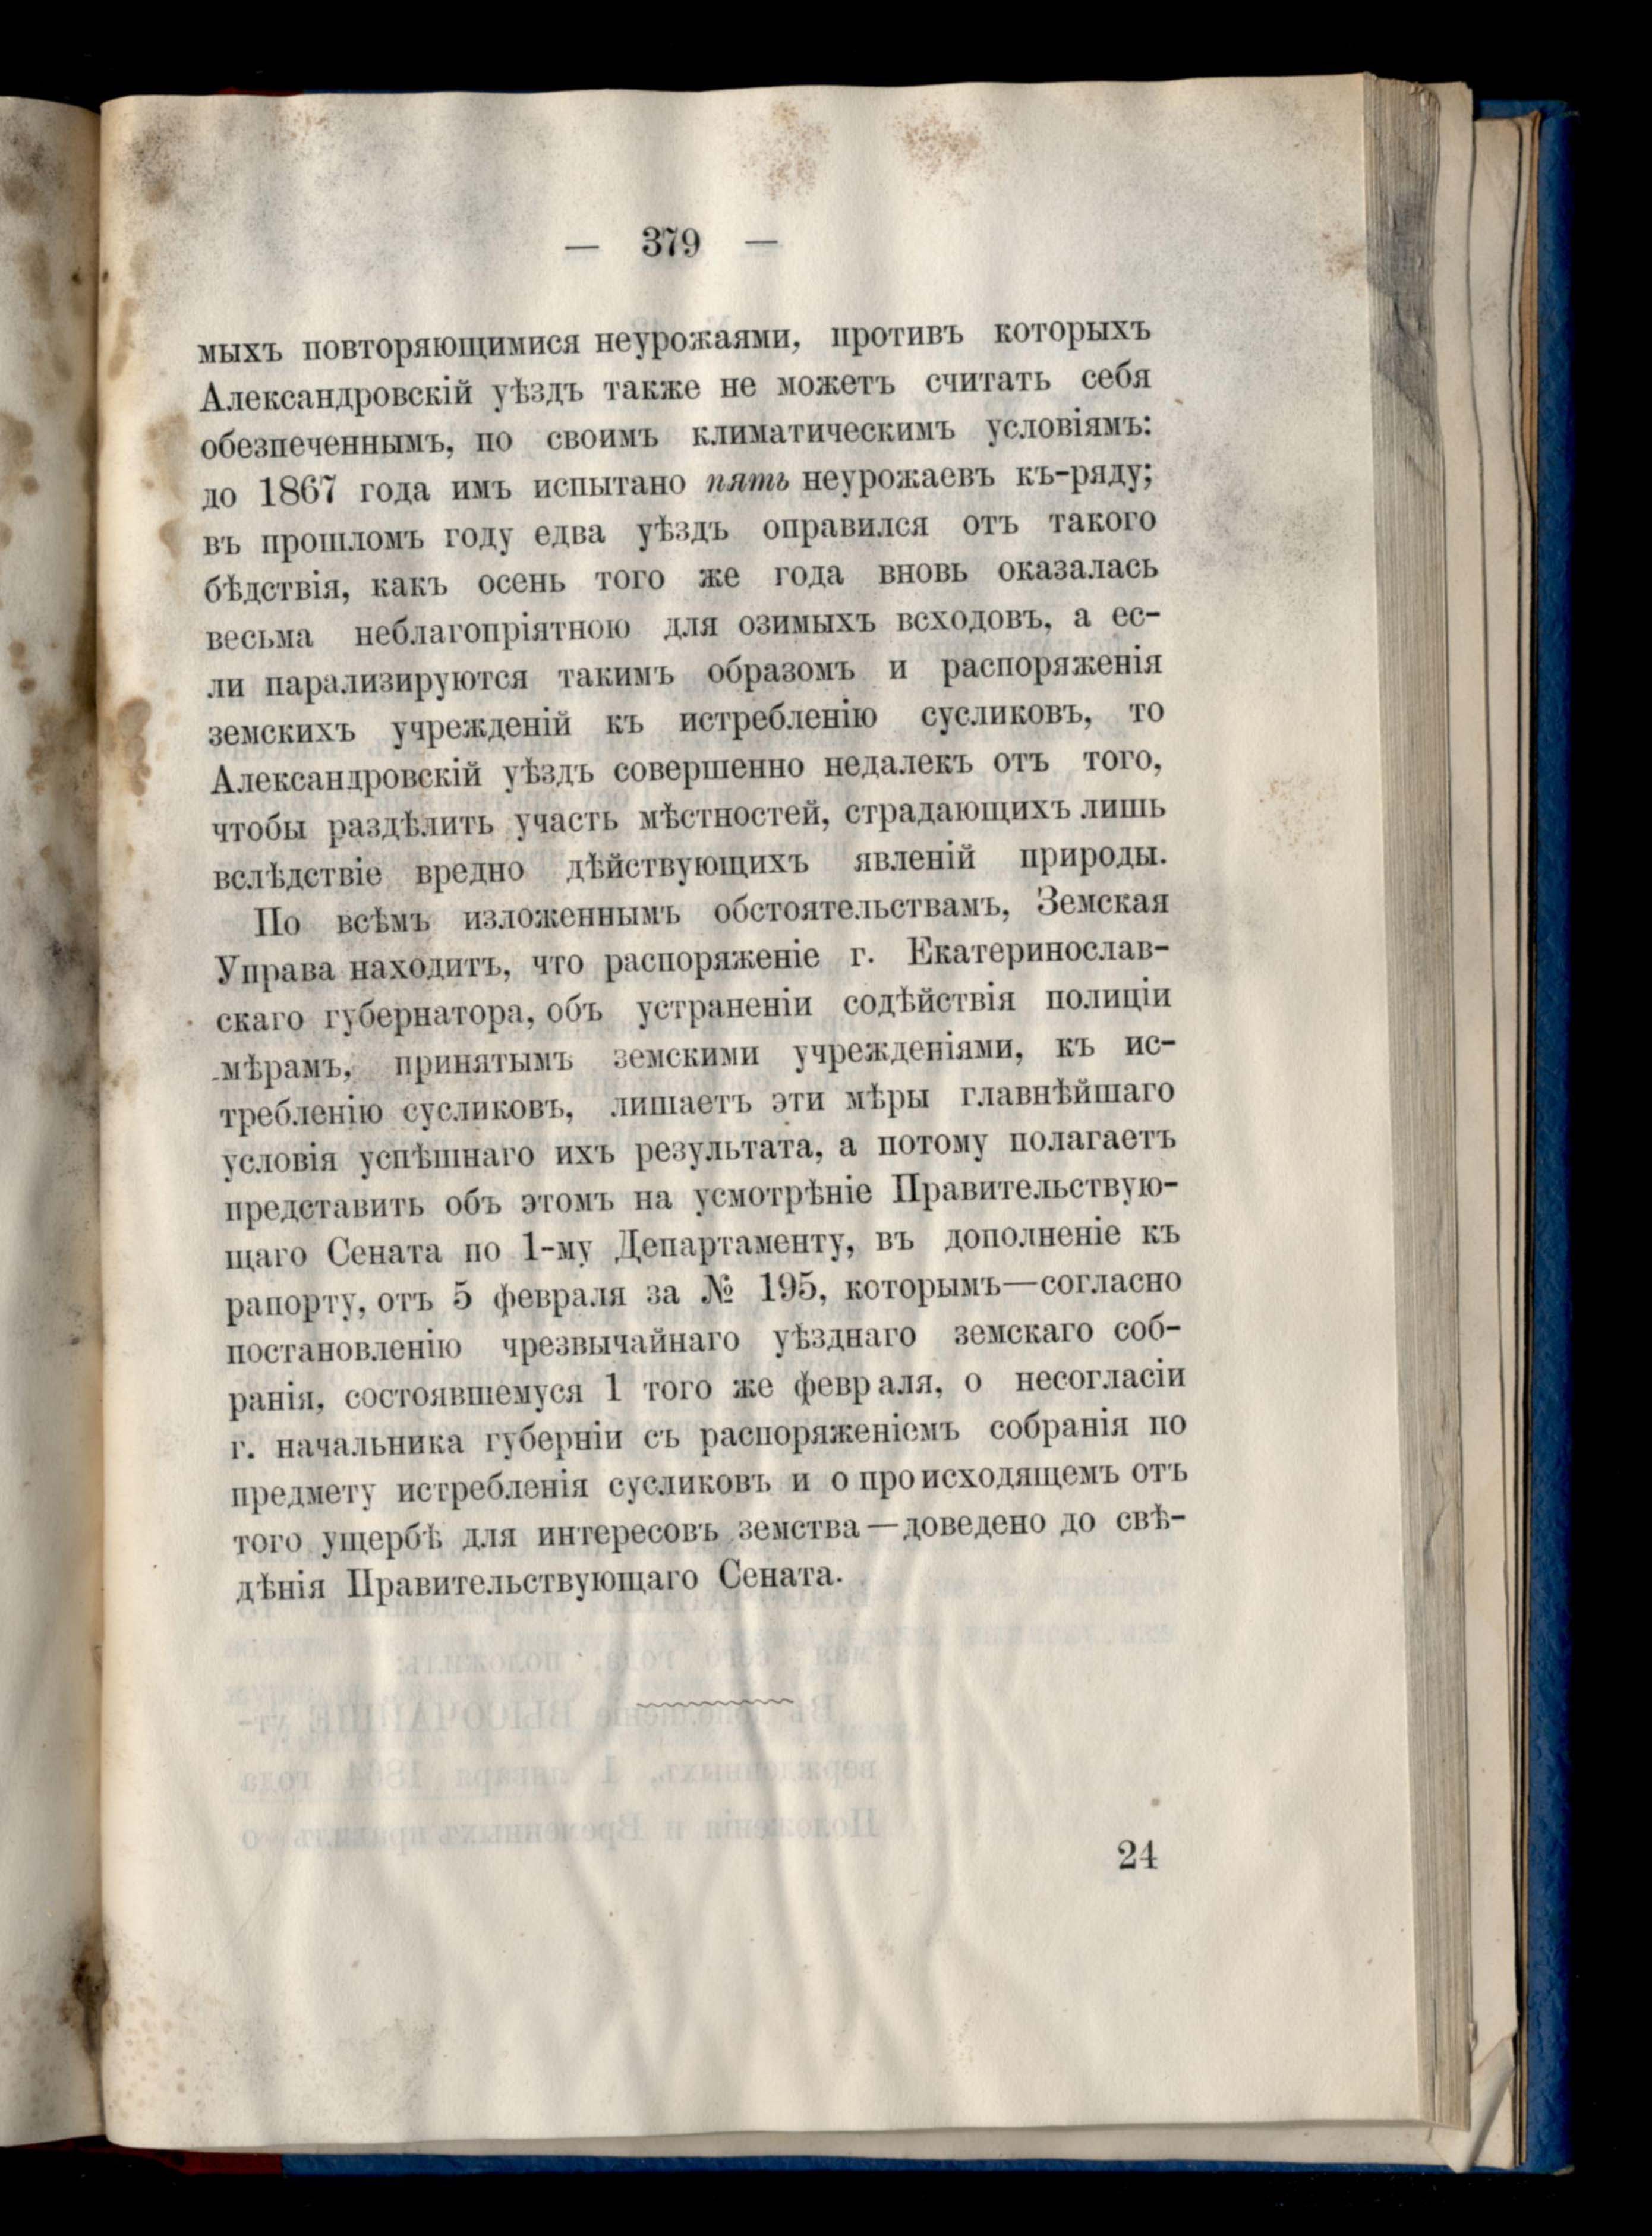 — 379 —
мыхъ повторяющимися неурожаями, противъ которыхъ
Александровскій уѣздъ также не можетъ считать себя
обезпеченнымъ, по своимъ климатическимъ условіямъ:
до 1867 года имъ испытано пять неурожаевъ къ-ряду;
въ прошломъ году едва уѣздъ оправился отъ такого
бѣдствія, какъ осень того же года вновь оказалась
весьма неблагопріятною для озимыхъ всходовъ, а ес-
ли парализируются такимъ образомъ и распоряженія
земскихъ учрежденій къ истребленію сусликовъ, то
Александровскій уѣздъ совершенно недалекъ отъ того,
чтобы раздѣлить участь мѣстностей, страдающихъ лишь
вслѣдствіе вредно дѣйствующихъ явленій природы.
По всѣмъ изложеннымъ обстоятельствамъ, Земская
Управа находитъ, что распоряженіе г. Екатеринослав-
скаго губернатора, объ устраненіи содѣйствія полиціи
мѣрамъ, принятымъ земскими учрежденіями, къ ис-
требленію сусликовъ, лишаетъ эти мѣры главнѣйшаго
условія успѣшнаго ихъ результата, а потому полагаетъ
представить объ этомъ на усмотрѣніе Правительствую-
щаго Сената по 1-му Департаменту, въ дополненіе къ
рапорту, отъ 5 февраля за № 195, которымъ—согласно
постановленію чрезвычайнаго уѣзднаго земскаго соб-
ранія, состоявшемуся 1 того же февраля, о несогласіи
г. начальника губерніи съ распоряженіемъ собранія по
предмету истребленія сусликовъ и о происходящемъ отъ
того ущербѣ для интересовъ земства—доведено до свѣ-
дѣнія Правительствующаго Сената.
24